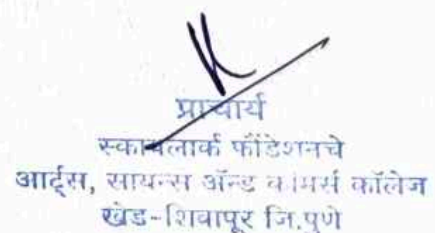 प्राचार्य
स्कायलार्क फौंडेशनचे
आर्ट्स, सायन्स ॲन्ड कॉमर्स कॉलेज
खेड-शिवापूर जि.पुणे